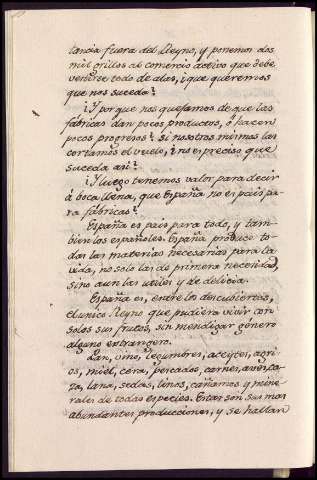 tancia fuera del Reyno, y ponemos dos
mil grillos al comercio activo que debe
vestirse todo de alas, ¿que queremos
que nos suceda?
¿Y porque nos quejamos de que las
fábricas dan pocos productos, ó hacen
pocos progresos? si nosotros mismos las
cortamos el vuelo, ¿no es preciso que
suceda asi?
¿Y luego tenemos valor para decir
á boca llena, que España no es pais pa-
ra fábricas?
España es pais para todo, y tam-
bien los españoles. España produce to-
das las materias necesarias para la
vida, no solo las de primera necesidad,
sino aun las utiles y de delicia.
España es, entre los descubiertos,
el unico Reyno que pudiera vivir con
solos sus frutos, sin mendigar género
alguno extrangero.
Pan, vino, legumbres, aceytes, agri-
os, miel, cera, pescados, carnes, aven ca-
za, lana, sedas, linos, cañamos y mine-
rales de todas especies. Estas son sus mas
abundantes producciones, y se hallan